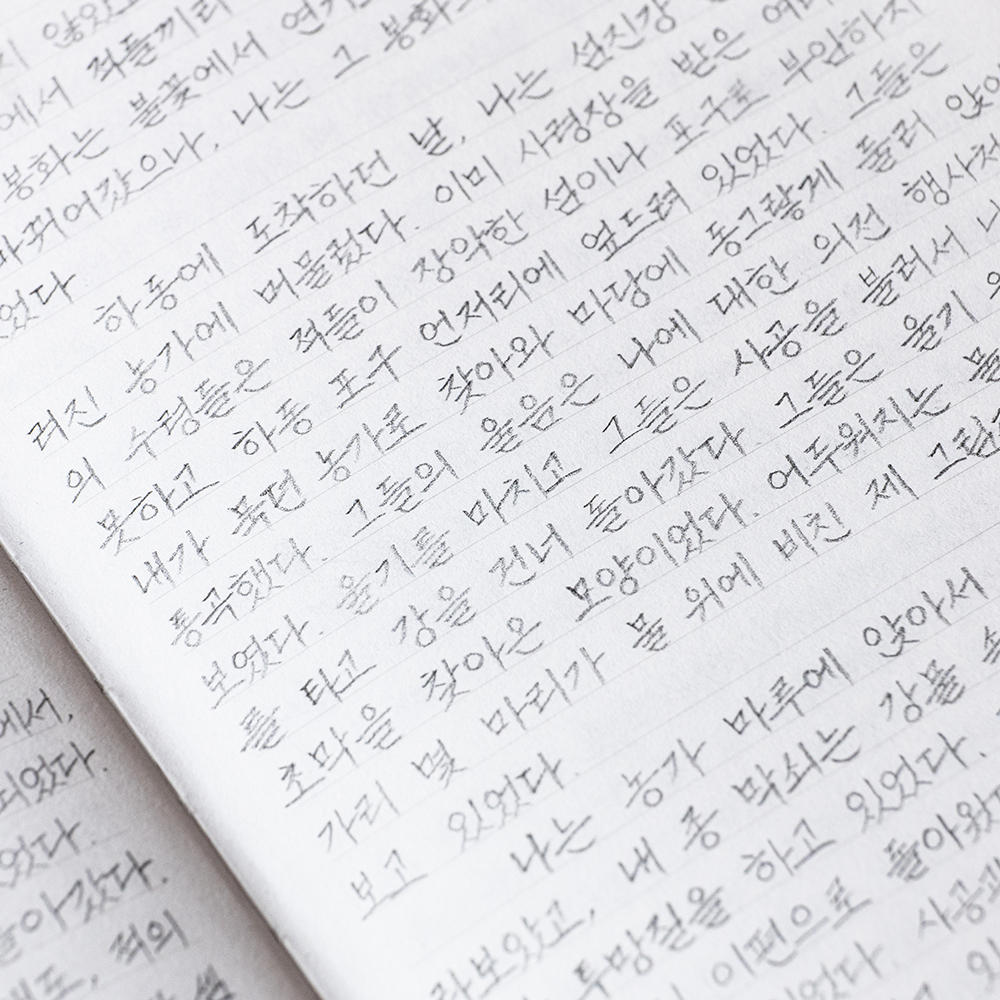 지 않았고
에서 적들끼리
봉화는 불꽃에서 연기
바뀌어갔으나, 나는 그 봉화
었다
하동에 도착하던 날, 나는 섬진강
러진 농가에 머물렀다. 이미 사령장을 받은 여
의 수령들은 적들이 장악한 섬이나 포구로 부임하지
못하고 하동 포구 언저리에 엎드려 있었다. 그들은
내가 묵던 농가로 찾아와 마당에 동그랗게 둘러 앉아
통곡했다. 그들의 울음은 나에 대한 의전 행사처
보였다. 울기를 마치고 그들은 사공을 불러서 나
를 타고 강을 건너 돌아갔다 그들은 울기 위
초막을 찾아온 모양이었다. 어두워지는 물
가리 몇 마리가 물 위에 비친 제 그림
보고 있었다.
나는 농가 마루에 앉아서
라보았고, 내 종 막쇠는 강물 속
투망질을 하고 있었다.
이편으로 돌아왔
사공과
에서,
되었다.
었다.
돌아갔다.
대포, 적의